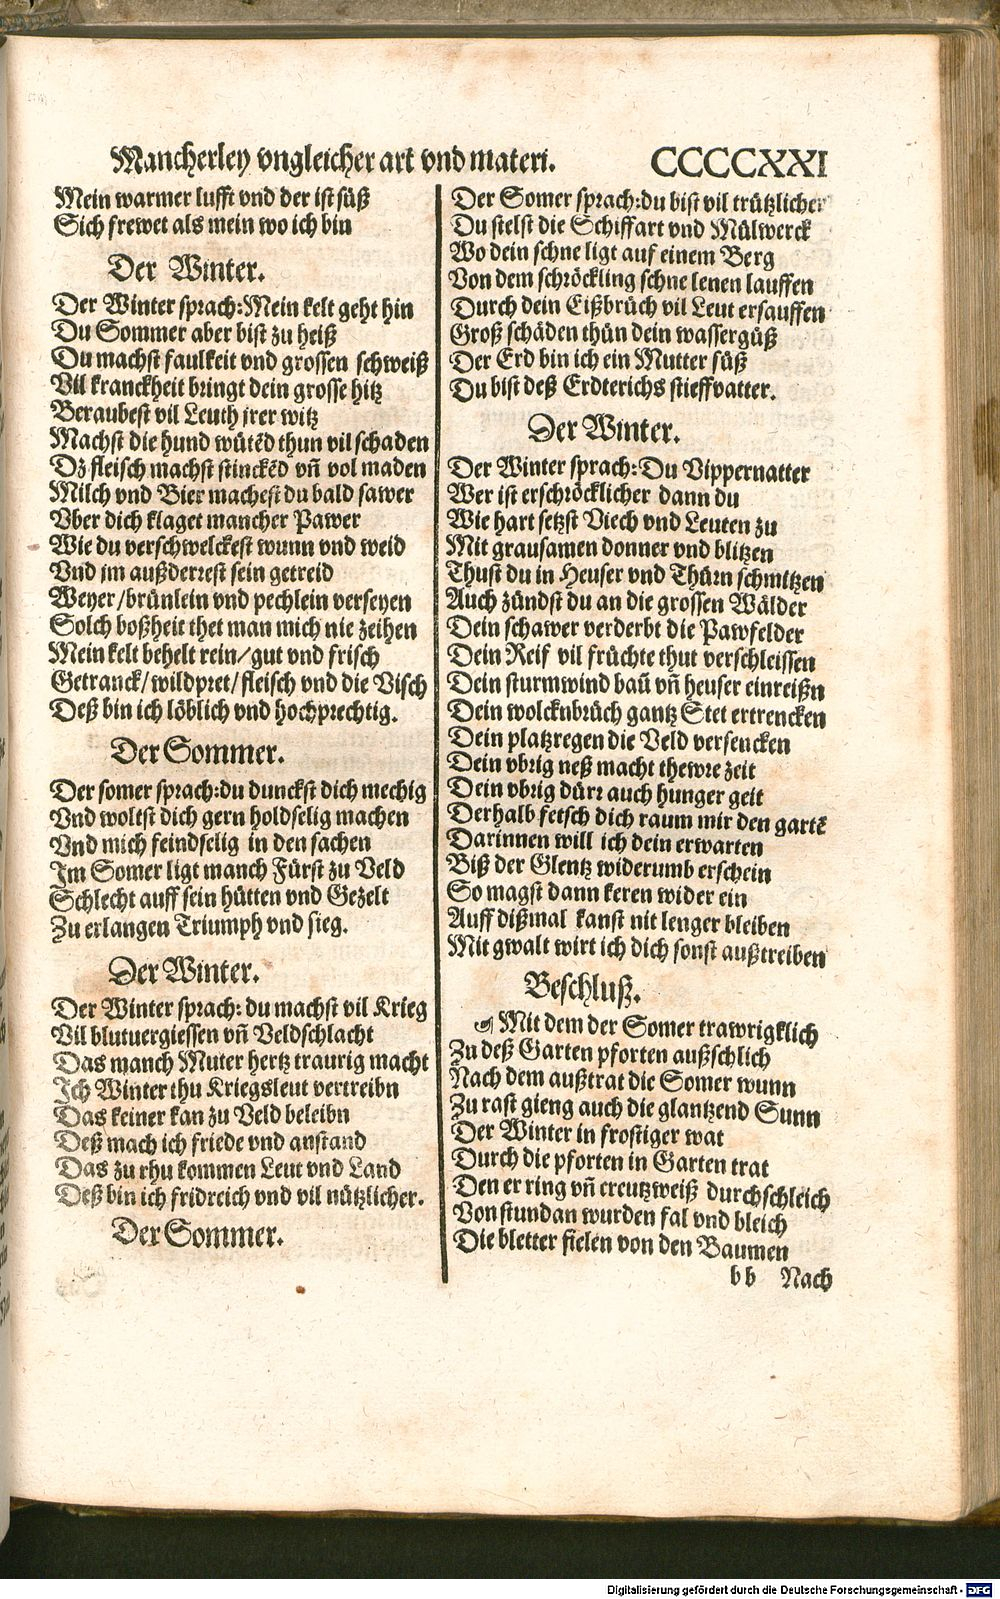 Mancherley vngleicher art vnd materi. CCCCXXI
Mein warmer lufft vnd der ist süß
Sich frewet als mein wo ich bin
Der Winter.
Der Winter sprach: Mein kelt geht hin
Du Sommer aber bist zu heiß
Du machst faulkeit vnd grossen schweiß
Vil kranckheit bringt dein grosse hitz
Beraubest vil Leuth jrer witz
Machst die hund wütēd thun vil schaden
Dz fleisch machst stinckēd vñ vol maden
Milch vnd Bier machest du bald sawer
Vber dich klaget mancher Pawer
Wie du verschwelckest wunn vnd weid
Vnd jm außderrest sein getreid
Weyer/brünlein vnd pechlein verseyen
Solch boßheit thet man mich nie zeihen
Mein kelt behelt rein/gut vnd frisch
Getranck/wildpret/fleisch vnd die Visch
Deß bin ich löblich vnd hochprechtig.
Der Sommer.
Der somer sprach: du dunckst dich mechig
Vnd woltst dich gern holdselig machen
Vnd mich feindselig in den sachen
Im Somer ligt manch Fürst zu Veld
Schlecht auff sein hütten vnd Gezelt
Zu erlangen Triumph vnd sieg.
Der Winter.
Der Winter sprach: du machst vil Krieg
Vil blutuergiessen vñ Veldschlacht
Das manch Muter hertz traurig macht
Ich Winter thu Kriegsleut vertreibn
Das keiner kan zu Veld beleibn
Deß mach ich friede vnd anstand
Das zu rhu kommen Leut vnd Land
Deß bin ich fridreich vnd vil nützlicher.
Der Sommer.
Der Somer sprach: du bist vil trützlicher
Du stelst die Schiffart vnd Mülwerck
Wo dein schne ligt auf einem Berg
Von dem schröckling schne lenen lauffen
Durch dein Eißbrüch vil Leut ersauffen
Groß schäden thün dein wassergüß
Der Erd bin ich ein Mutter süß
Du bist deß Erdterichs stieffvatter.
Der Winter.
Der Winter sprach: Du Vippernatter
Wer ist erschröcklicher dann du
Wie hart setzst Viech vnd Leuten zu
Mit grausamen donner vnd blitzen
Thust du in Heuser vnd Thürn schmitzen
Auch zündst du an die grossen Wälder
Dein schawer verderbt die Pawfelder
Dein Reif vil früchte thut verschleissen
Dein sturmwind baü vñ heuser einreißn
Dein wolcknbrüch gantz Stet ertrencken
Dein platzregen die Veld versencken
Dein vbrig neß macht thewre zeit
Dein vbrig dürr auch hunger geit
Derhalb fetsch dich raum mir den gartē
Darinnen will ich dein erwarten
Biß der Glentz widerumb erschein
So magst dann keren wider ein
Auff dißmal kanst nit lenger bleiben
Mit gwalt wirt ich dich sonst außtreiben
Beschluß.
☙ Mit dem der Somer trawrigklich
Zu deß Garten pforten außschlich
Nach dem außtrat die Somer wunn
Zu rast gieng auch die glantzend Sunn
Der Winter in frostiger wat
Durch die pforten in Garten trat
Den er ring vñ creutzweiß durchschleich
Von stundan wurden fal vnd bleich
Die bletter fielen von den Baumen
bb Nach
Digitalisierung gefördert durch die Deutsche Forschungsgemeinschaft - DFG